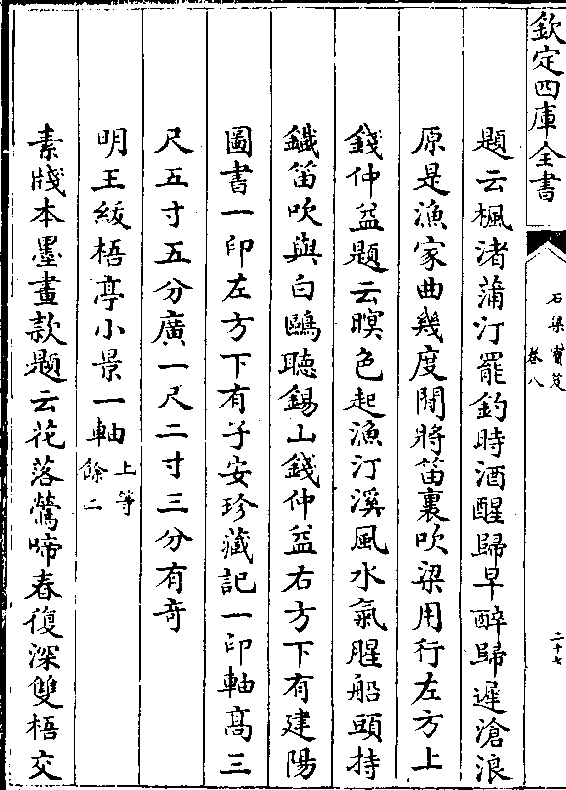 欽定四庫全書
石渠寶笈
卷八
二十七
題云楓渚蒲汀罷釣時酒醒歸早醉歸遲滄浪
原是漁家曲幾度閒將笛裏吹梁用行左方上
錢仲益題云暝色起漁汀溪風水氣腥船頭持
鐵笛吹與白鷗聽錫山錢仲益右方下有建陽
圖書一印左方下有子安珍藏記一印軸高三
尺五寸五分廣一尺二寸三分有奇
明王紱梧亭小景一軸上等
餘二
素牋本墨畫款題云花落鶯啼春復深雙梧交